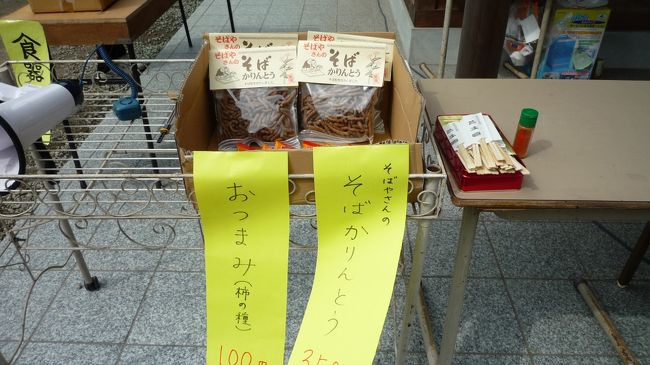 食器
そばやさんの
そば
かりんとう
そばやさんの
そば
かりんとう
おつまみ(柿の種)
100
そばやさんの
そばかりんとう
350